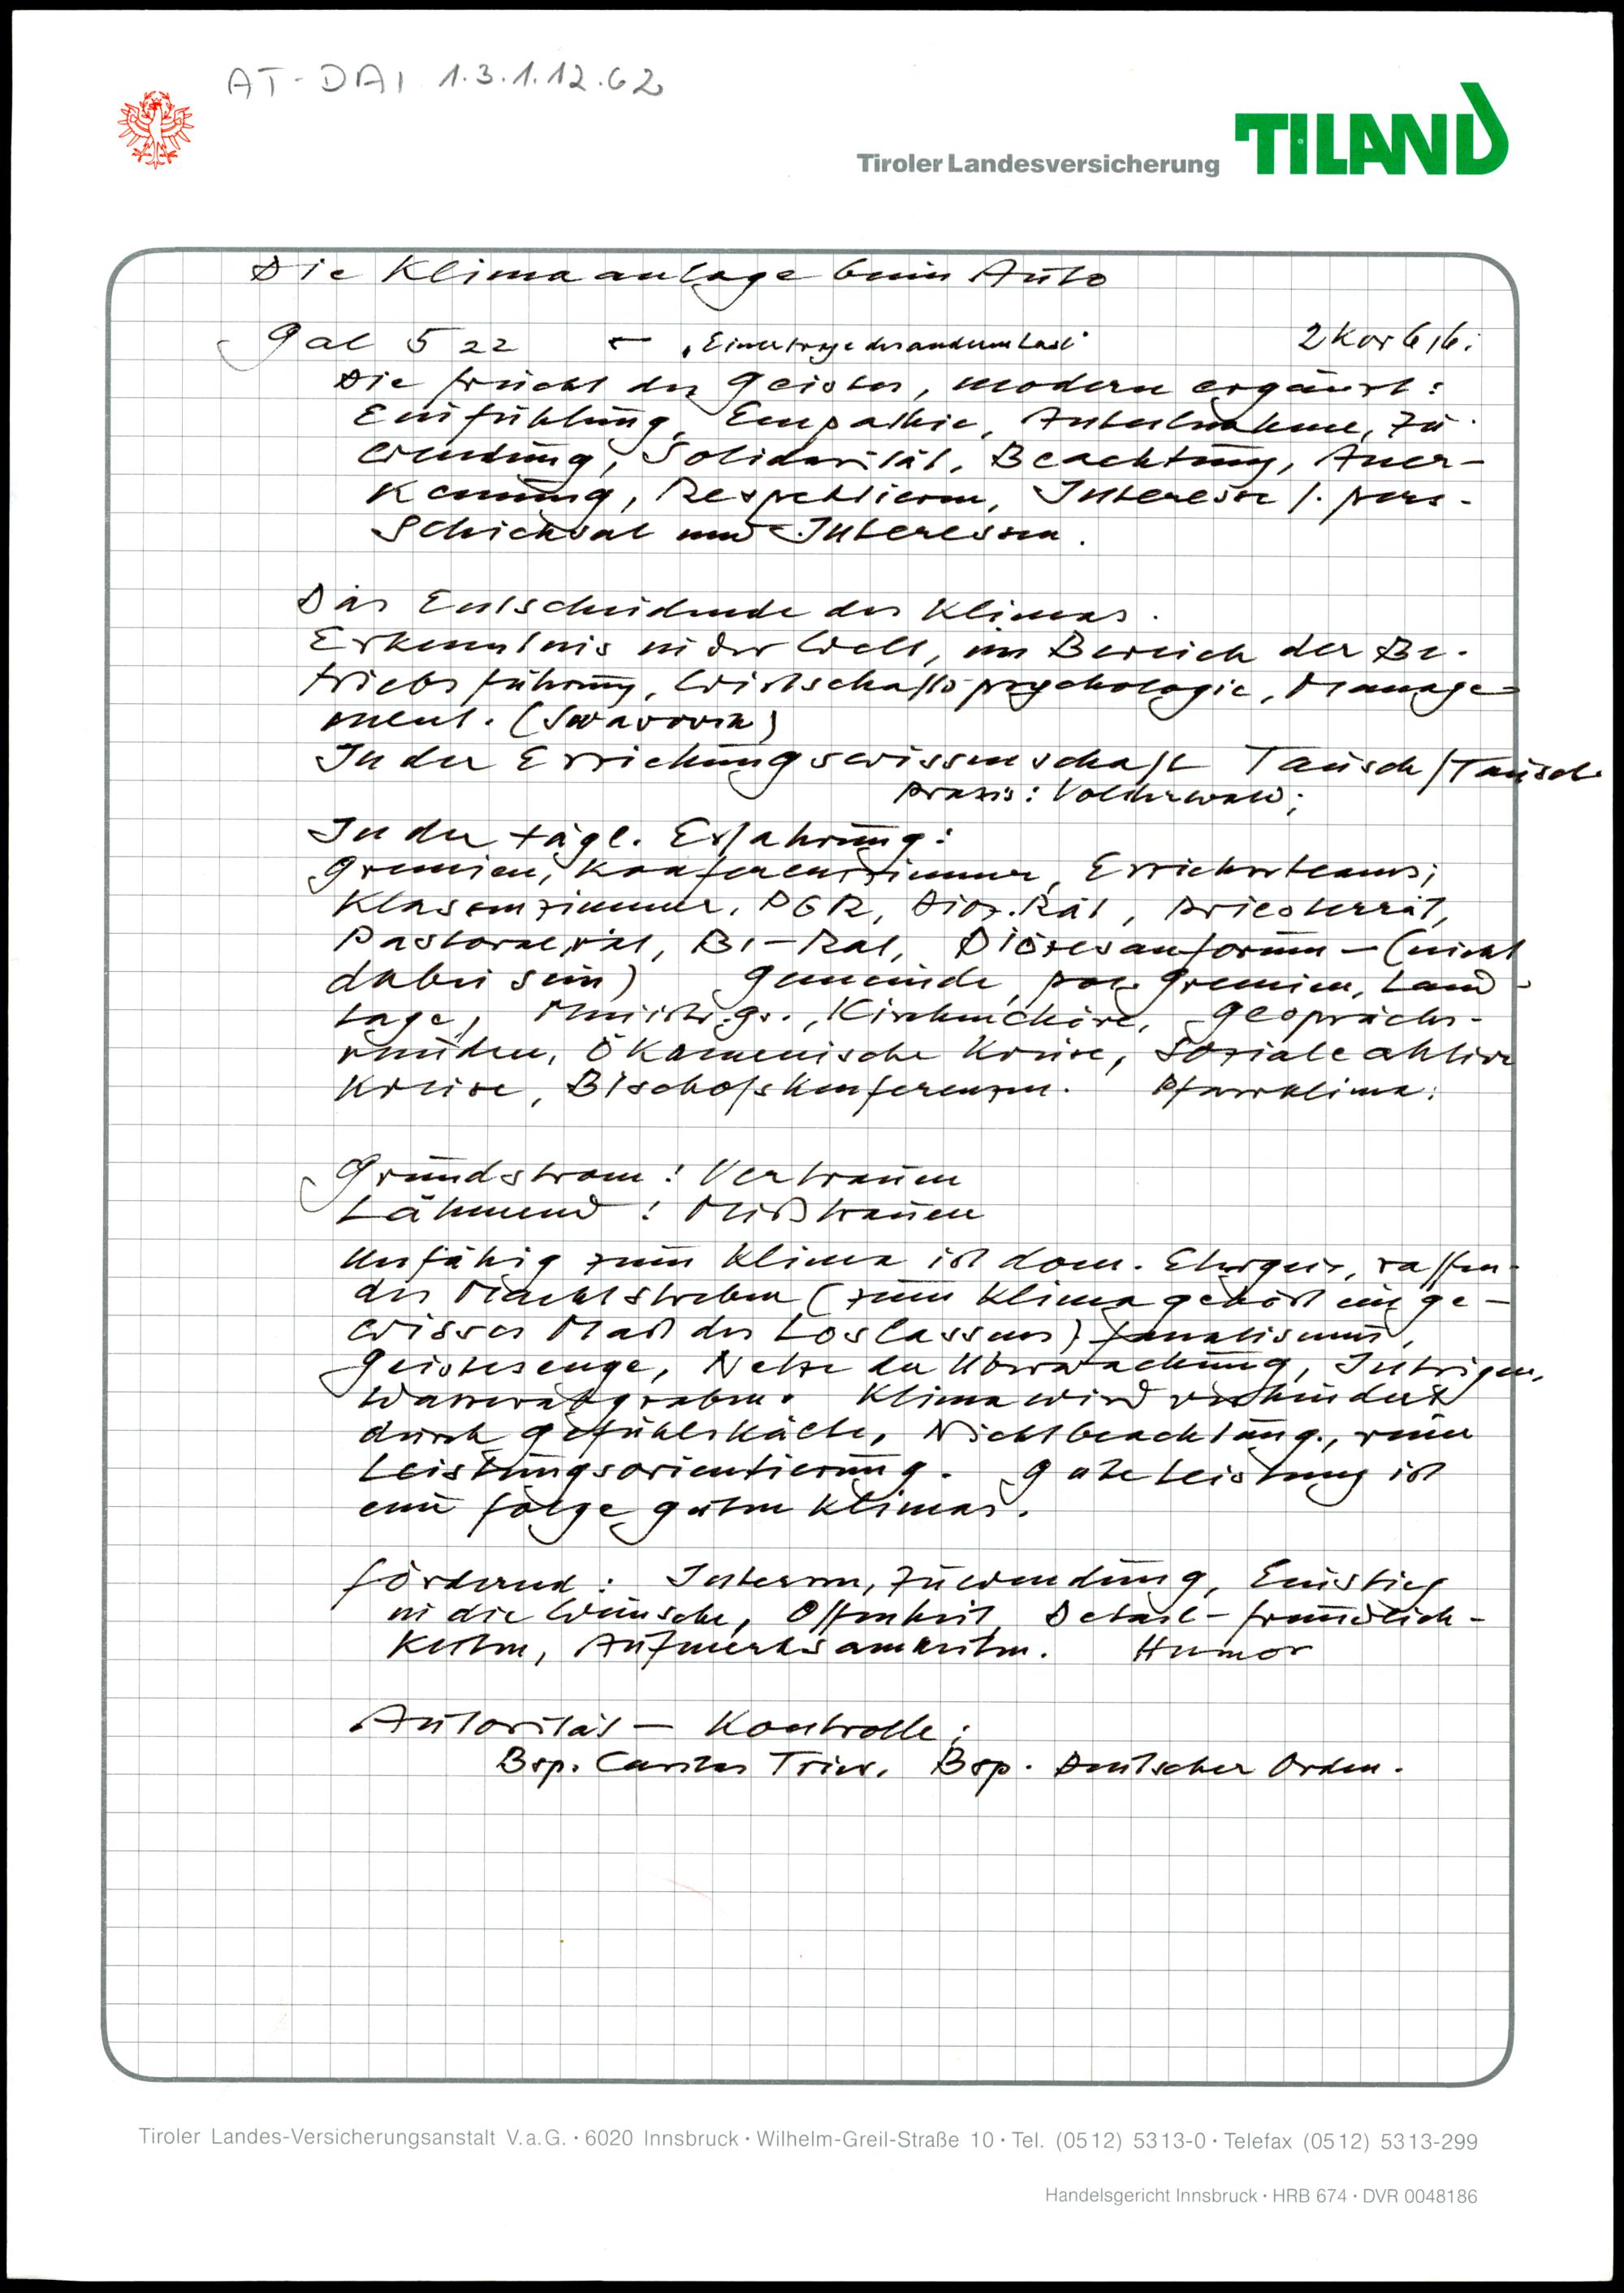 AT-DAI 1.3.1.12.62
Tiroler Landesversicherung TILAND
Die Klimaanlage beim Auto
Gal 5 22 ← „Einer trage des andern Last" 2 Kor 6,6:
Die Frucht des Geistes, modern ergänzt:
Einfühlung, Empathie, Anteilnahme, Zu-
wendung, Solidarität, Beachtung, Aner-
kennung, Respektieren, Interesse f. pers.
Schicksal und Interessen.
Das Entscheidende des Klimas.
Erkenntnis in der Welt, im Bereich der Be-
triebsführung, Wirtschaftspsychologie, Manage-
ment. (Swarovski)
In der Erziehungswissenschaft Tausch/Tausch
Praxis: Volderwald;
In der tägl. Erfahrung:
Gremien, Konferenzzimmer, Erzieherteams;
Klassenzimmer, PGR, Diöz.Rat, Priesterrat,
Pastoralrat, BI-Rat, Diözesanforum – (nicht
dabei sein) Gemeinde, pol. Gremien, Land-
tage, Ministr.gr., Kirchenchöre, Gesprächs-
runden, Ökumenische Kreise, Soziale aktive
Kreise, Bischofskonferenzen. Pfarrklima:
Grundstrom: Vertrauen
Lähmend: Mißtrauen
Unfähig zum Klima ist dom. Ehrgeiz, raffen-
des Machtstreben (zum Klima gehört ein ge-
wisses Maß des Loslassens) Fanatismus,
Geistesenge, Netze der Überwachung, Intrigen,
Wasserabgraben. Klima wird verhindert
durch Gefühlskälte, Nichtbeachtung, reine
Leistungsorientierung. Gute Leistung ist
eine Folge guten Klimas.
Fördernd: Interesse, Zuwendung, Einstieg
in die Wünsche, Offenheit, Detail-Freundlich-
keiten, Aufmerksamkeiten. Humor
Autorität – Kontrolle:
Bsp. Caritas Trier. Bsp. Deutscher Orden.
Tiroler Landes-Versicherungsanstalt V.a.G. • 6020 Innsbruck • Wilhelm-Greil-Straße 10 • Tel. (0512) 5313-0 • Telefax (0512) 5313-299
Handelsgericht Innsbruck • HRB 674 • DVR 0048186